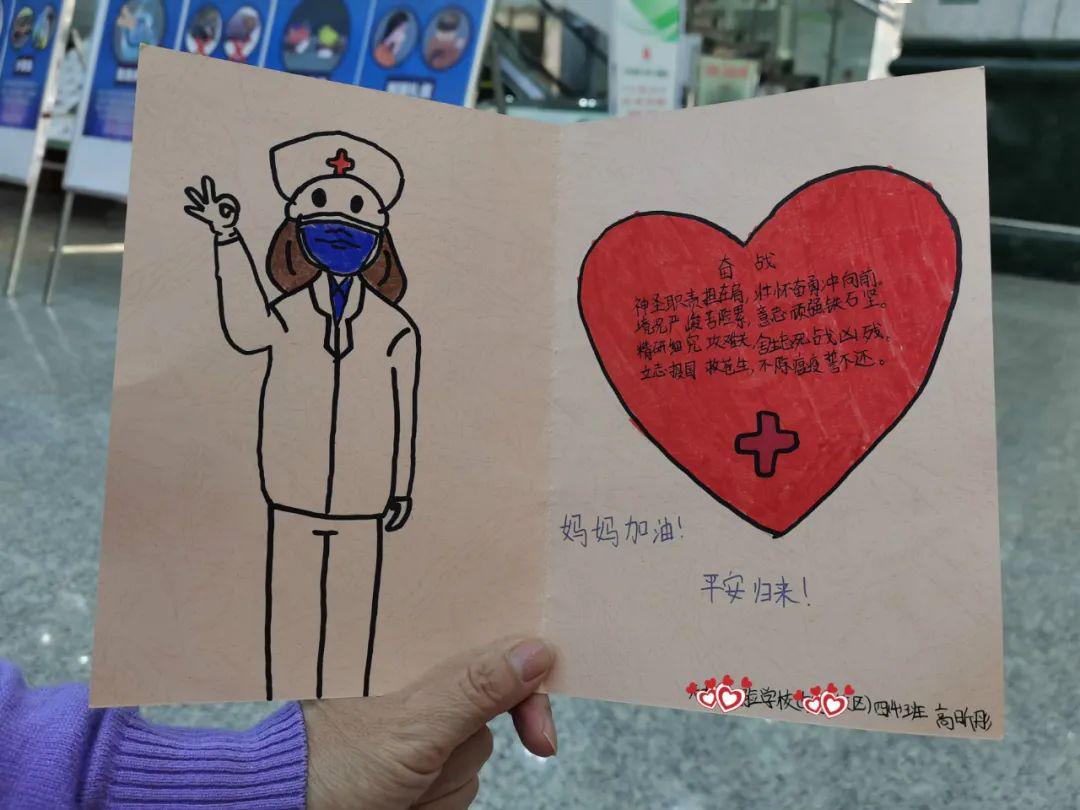 奋战
神圣职责担在肩，壮怀奋勇冲向前。
境况严峻苦脸累，意志顽强铁石坚。
精研细究攻难关，舍生死战凶残。
立志报国救苍生，不除瘟疫誓不还。
妈妈加油！
平安归来！
验学校 区）四4班 高昕彤